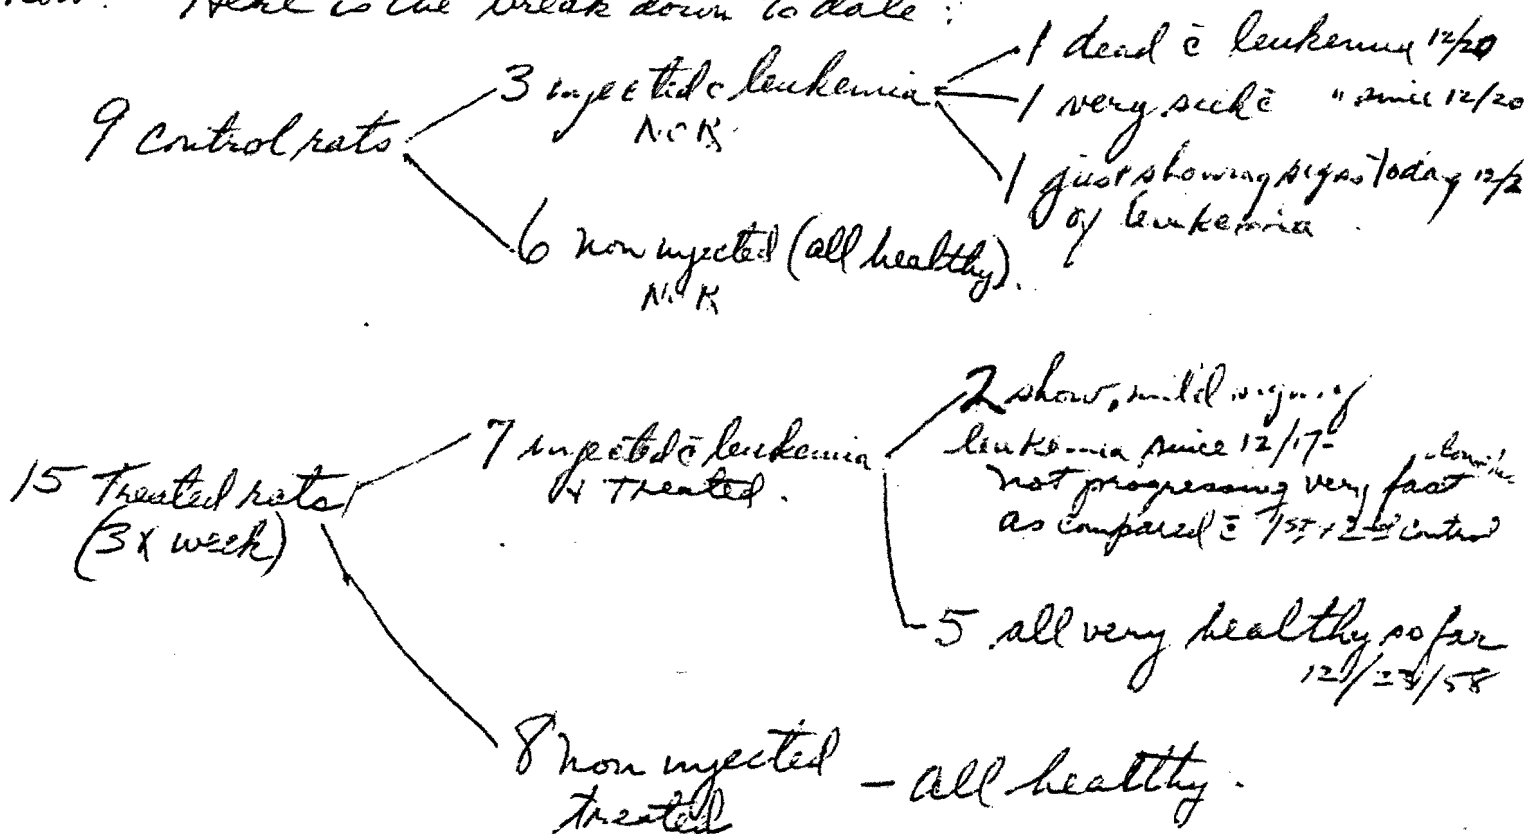 now. Here is the break down to date :
9 control rats
3 injected c̄ leukemia
No Rx
1 dead c̄ leukemia 12/20
1 very sick c̄ " since 12/20
1 just showing signs today 12/2
of leukemia.
6 non injected (all healthy).
No Rx
15 Treated rats
(3X week)
7 injected c̄ leukemia
& Treated.
2 show mild signs of
leukemia since 12/17-
not progressing very fast
as compared c̄ 1st + 2nd control
5 all very healthy so far
12/23/58
8 non injected - all healthy.
treated